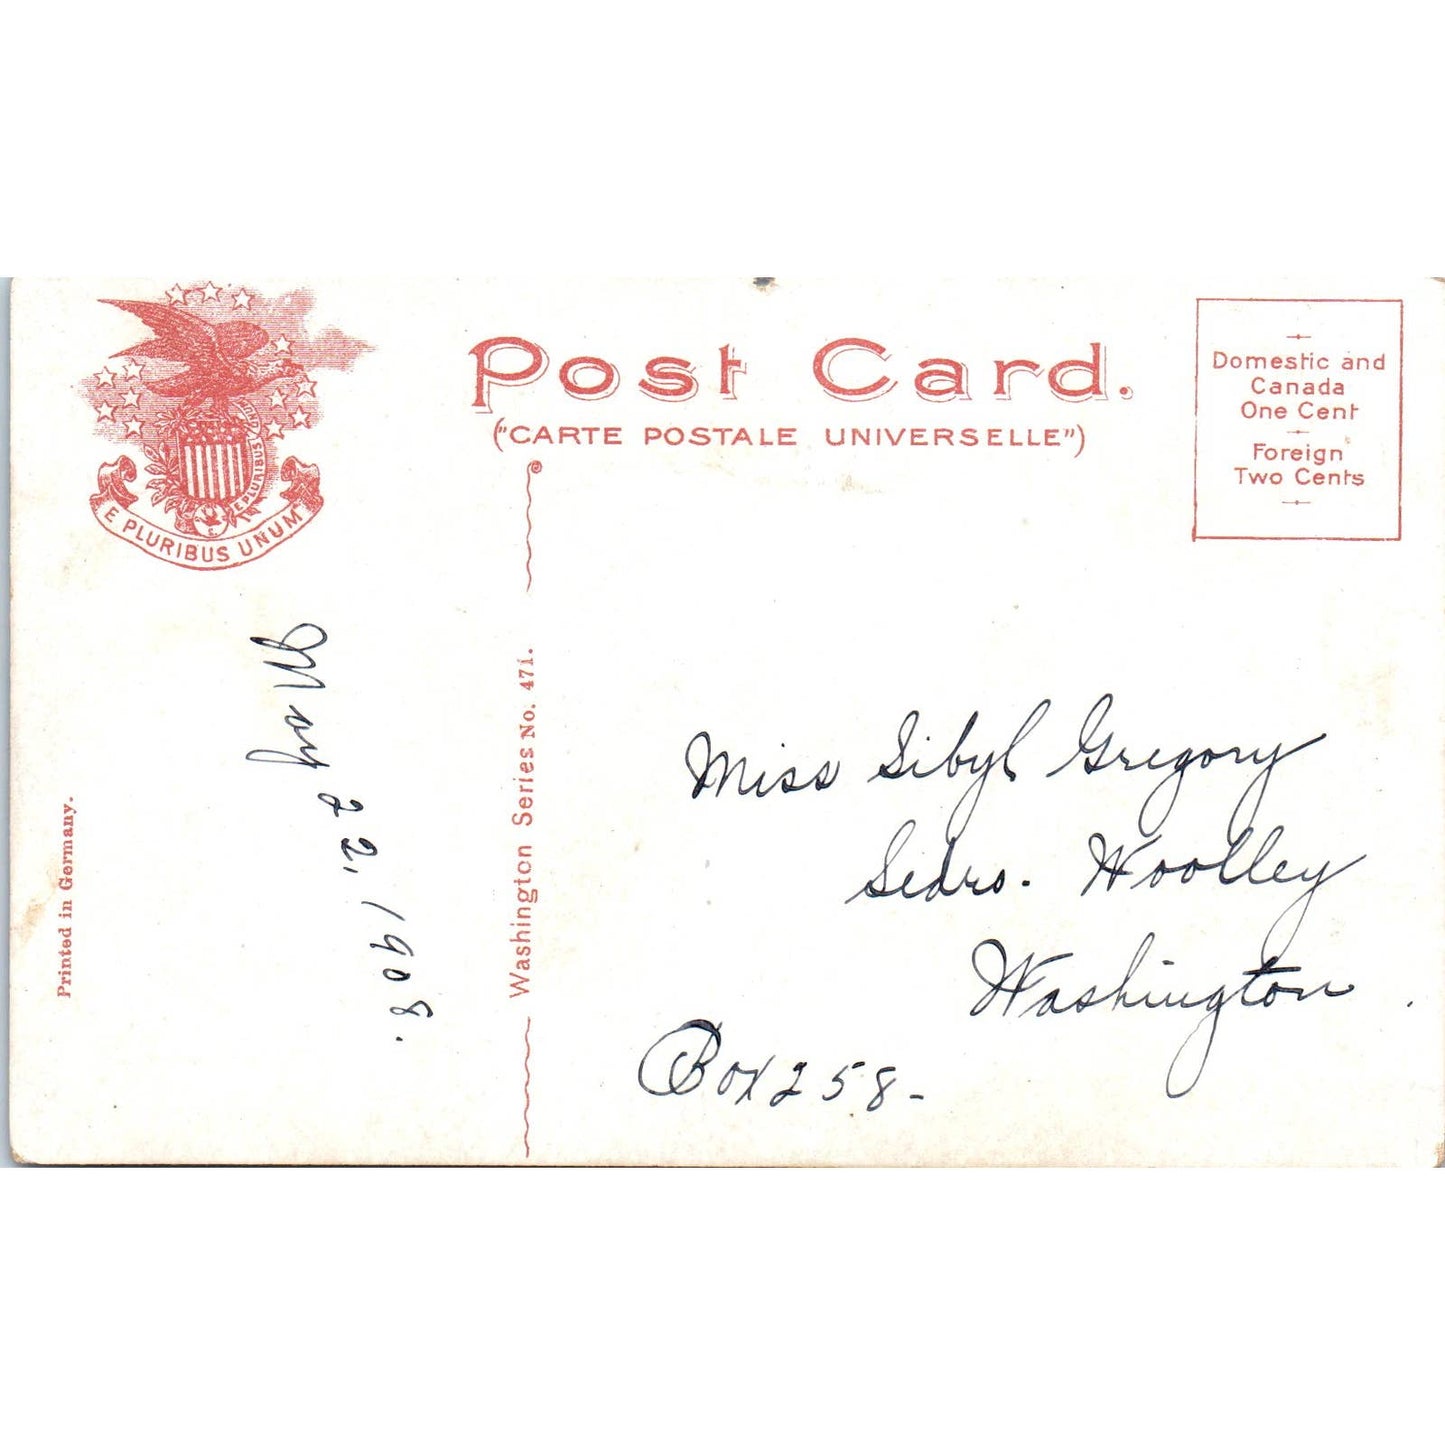 Post Card.
("CARTE POSTALE UNIVERSELLE")
Domestic and
Canada
One Cent
Foreign
Two Cents
E PLURIBUS UNUM
E PLURIBUS UNUM
Printed in Germany.
May 22, 1908.
Washington Series No. 471.
Miss Sibyl Gregory
Sedro. Woolley
Washington
Box 258-